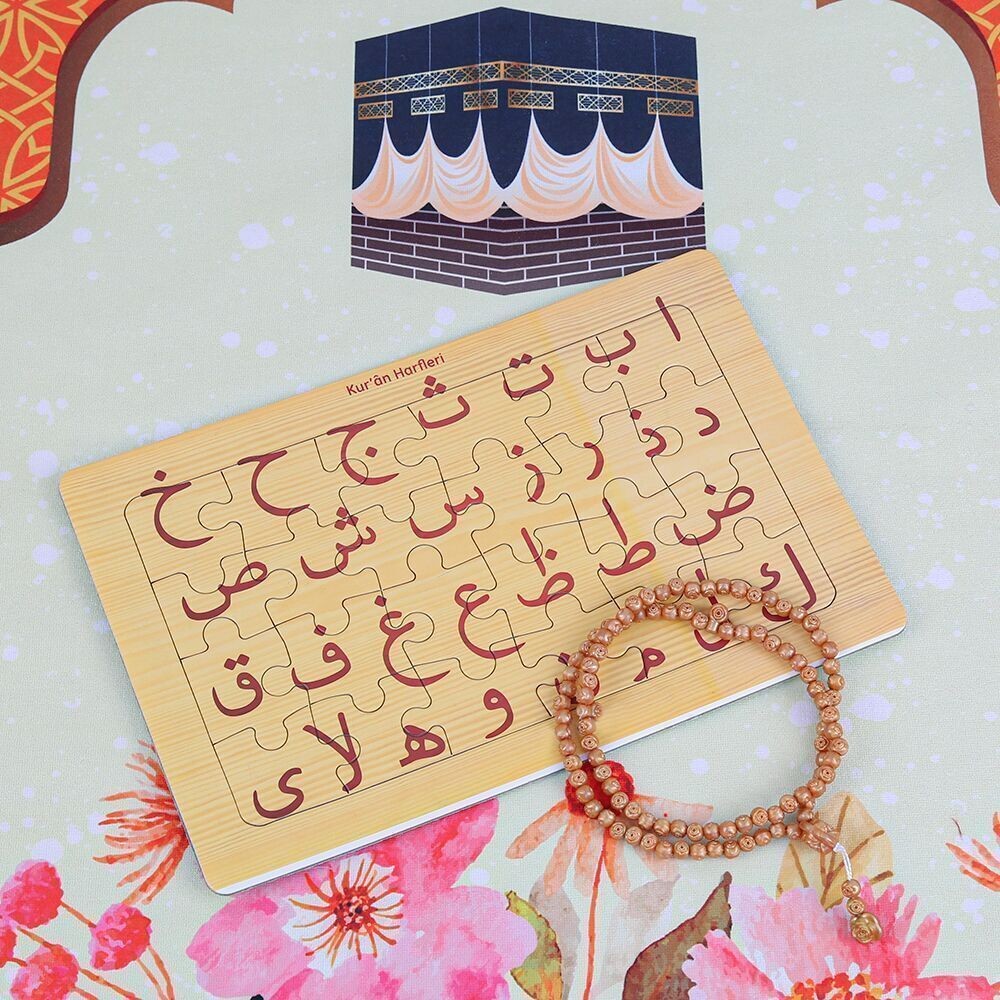 Kur'ân Harfleri
ا ب ت ث ج ح خ
د ذ ر ز س ش ص
ض ط ظ ع غ ف ق
ك ل م و ه لا ى